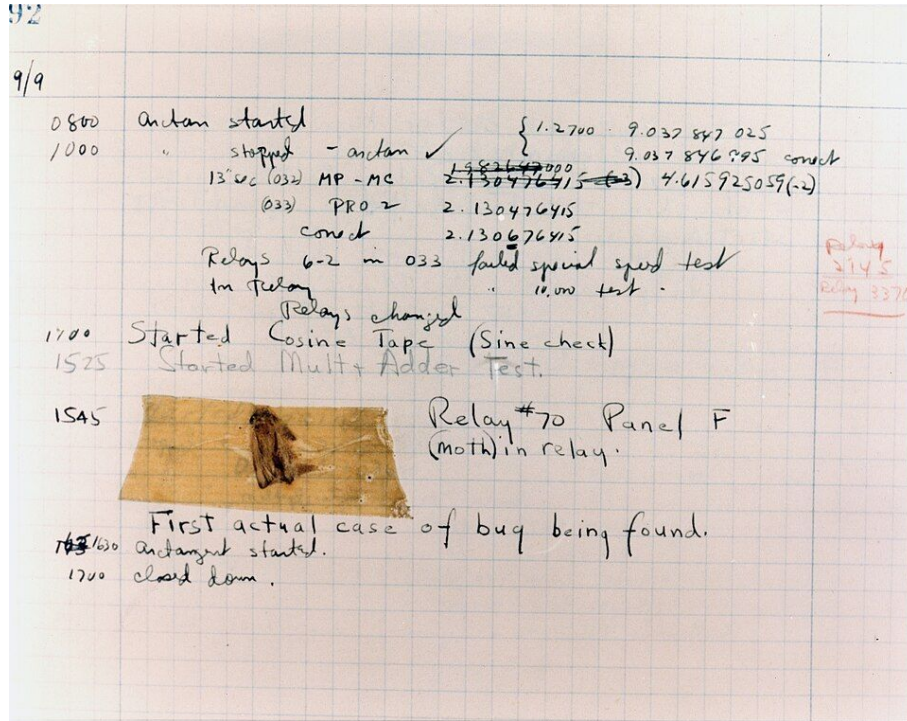 92
9/9
0800 arctan started { 1.2700 9.037 847 025
1000 " stopped - arctan ✓ 9.037 846 995 conect
13" sec (032) MP - MC 2.130476415 (-3) 4.615925059(-2)
(033) PRO 2 2.130476415
conect 2.130676415
Relays 6-2 in 033 failed special speed test
In Relay " 10,000 test .
Relays changed
Relay
2145
Relay 3370
1100 Started Cosine Tape (Sine check)
1525 Started Mult + Adder Test.
1545 Relay #70 Panel F
(moth) in relay.
First actual case of bug being found.
1630 arctangent started.
1700 closed down .